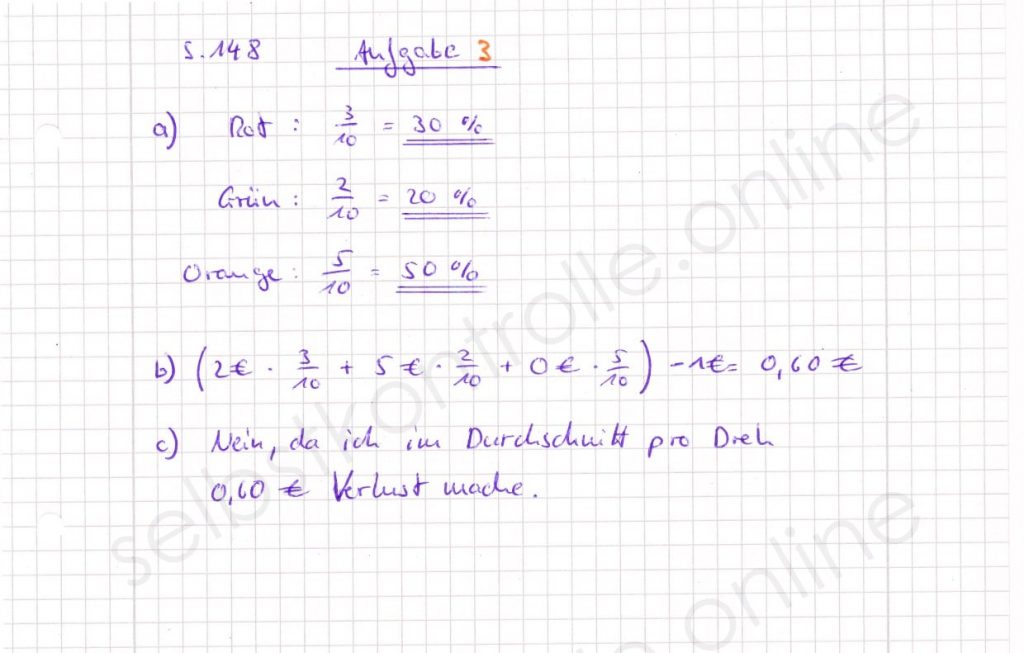 S. 148 Aufgabe 3
a) Rot : 3/10 = 30 %
Grün : 2/10 = 20 %
Orange : 5/10 = 50 %
b) (2€ · 3/10 + 5€ · 2/10 + 0€ · 5/10) - 1€ = 0,60 €
c) Nein, da ich im Durchschnitt pro Dreh
0,60 € Verlust mache.
selbstkontrolle.online
online